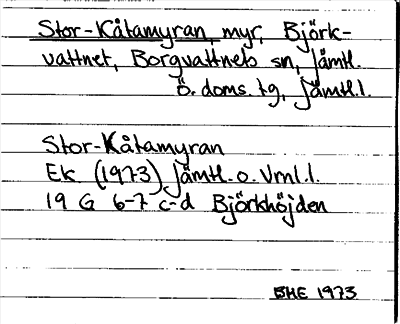 Stor-Kåtamyran, myr, Björk-
vattnet, Borgvattnets sn, Jämtl.
ö. doms. tg, Jämtl.l.
Stor-Kåtamyran
Ek (1973) Jämtl. o. Vrnl.l.
19 G 6-7 c-d Björkhöjden
BHE 1973